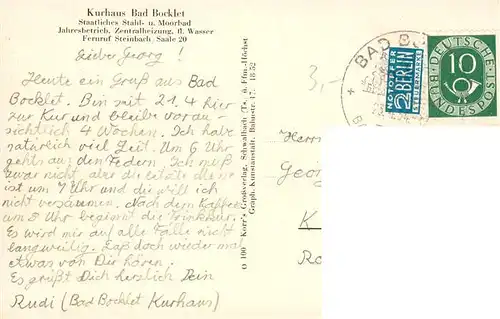 Kurhaus Bad Bocklet
Staatliches Stahl- u. Moorbad
Jahresbetrieb, Zentralheizung, fl. Wasser
Fernruf Steinbach, Saale 20
Lieber Georg!
Heute ein Gruß aus Bad
Bocklet. Bin mit 21.4 hier
zur Kur und bleibe voraus-
sichtlich 4 Wochen. Ich habe
natürlich viel Zeit. Um 6 Uhr
gehts aus den Federn. Ich muß
zwar nicht, aber die
ist um 7 Uhr und die will ich
nicht versäumen. Nach dem Kaffee
um 8 Uhr beginnt die Trinkkur.
Es wird mir auf alle Fälle nicht
langweilig. Laß doch wieder mal
etwas von Dir hören.
Es grüßt Dich herzlich Dein
Rudi (Bad Bocklet Kurhaus)
O 100 Korr's Großverlag, Schwalbach (Ts.) ü. Ffm.-Höchst
Graph. Kunstanstalt, 17. 18/52
BAD BO
NOTOPFER
2 BERLIN
STEUERMARKE
DEUTSCHE
BUNDESPOST
10
Herrn
Georg
K